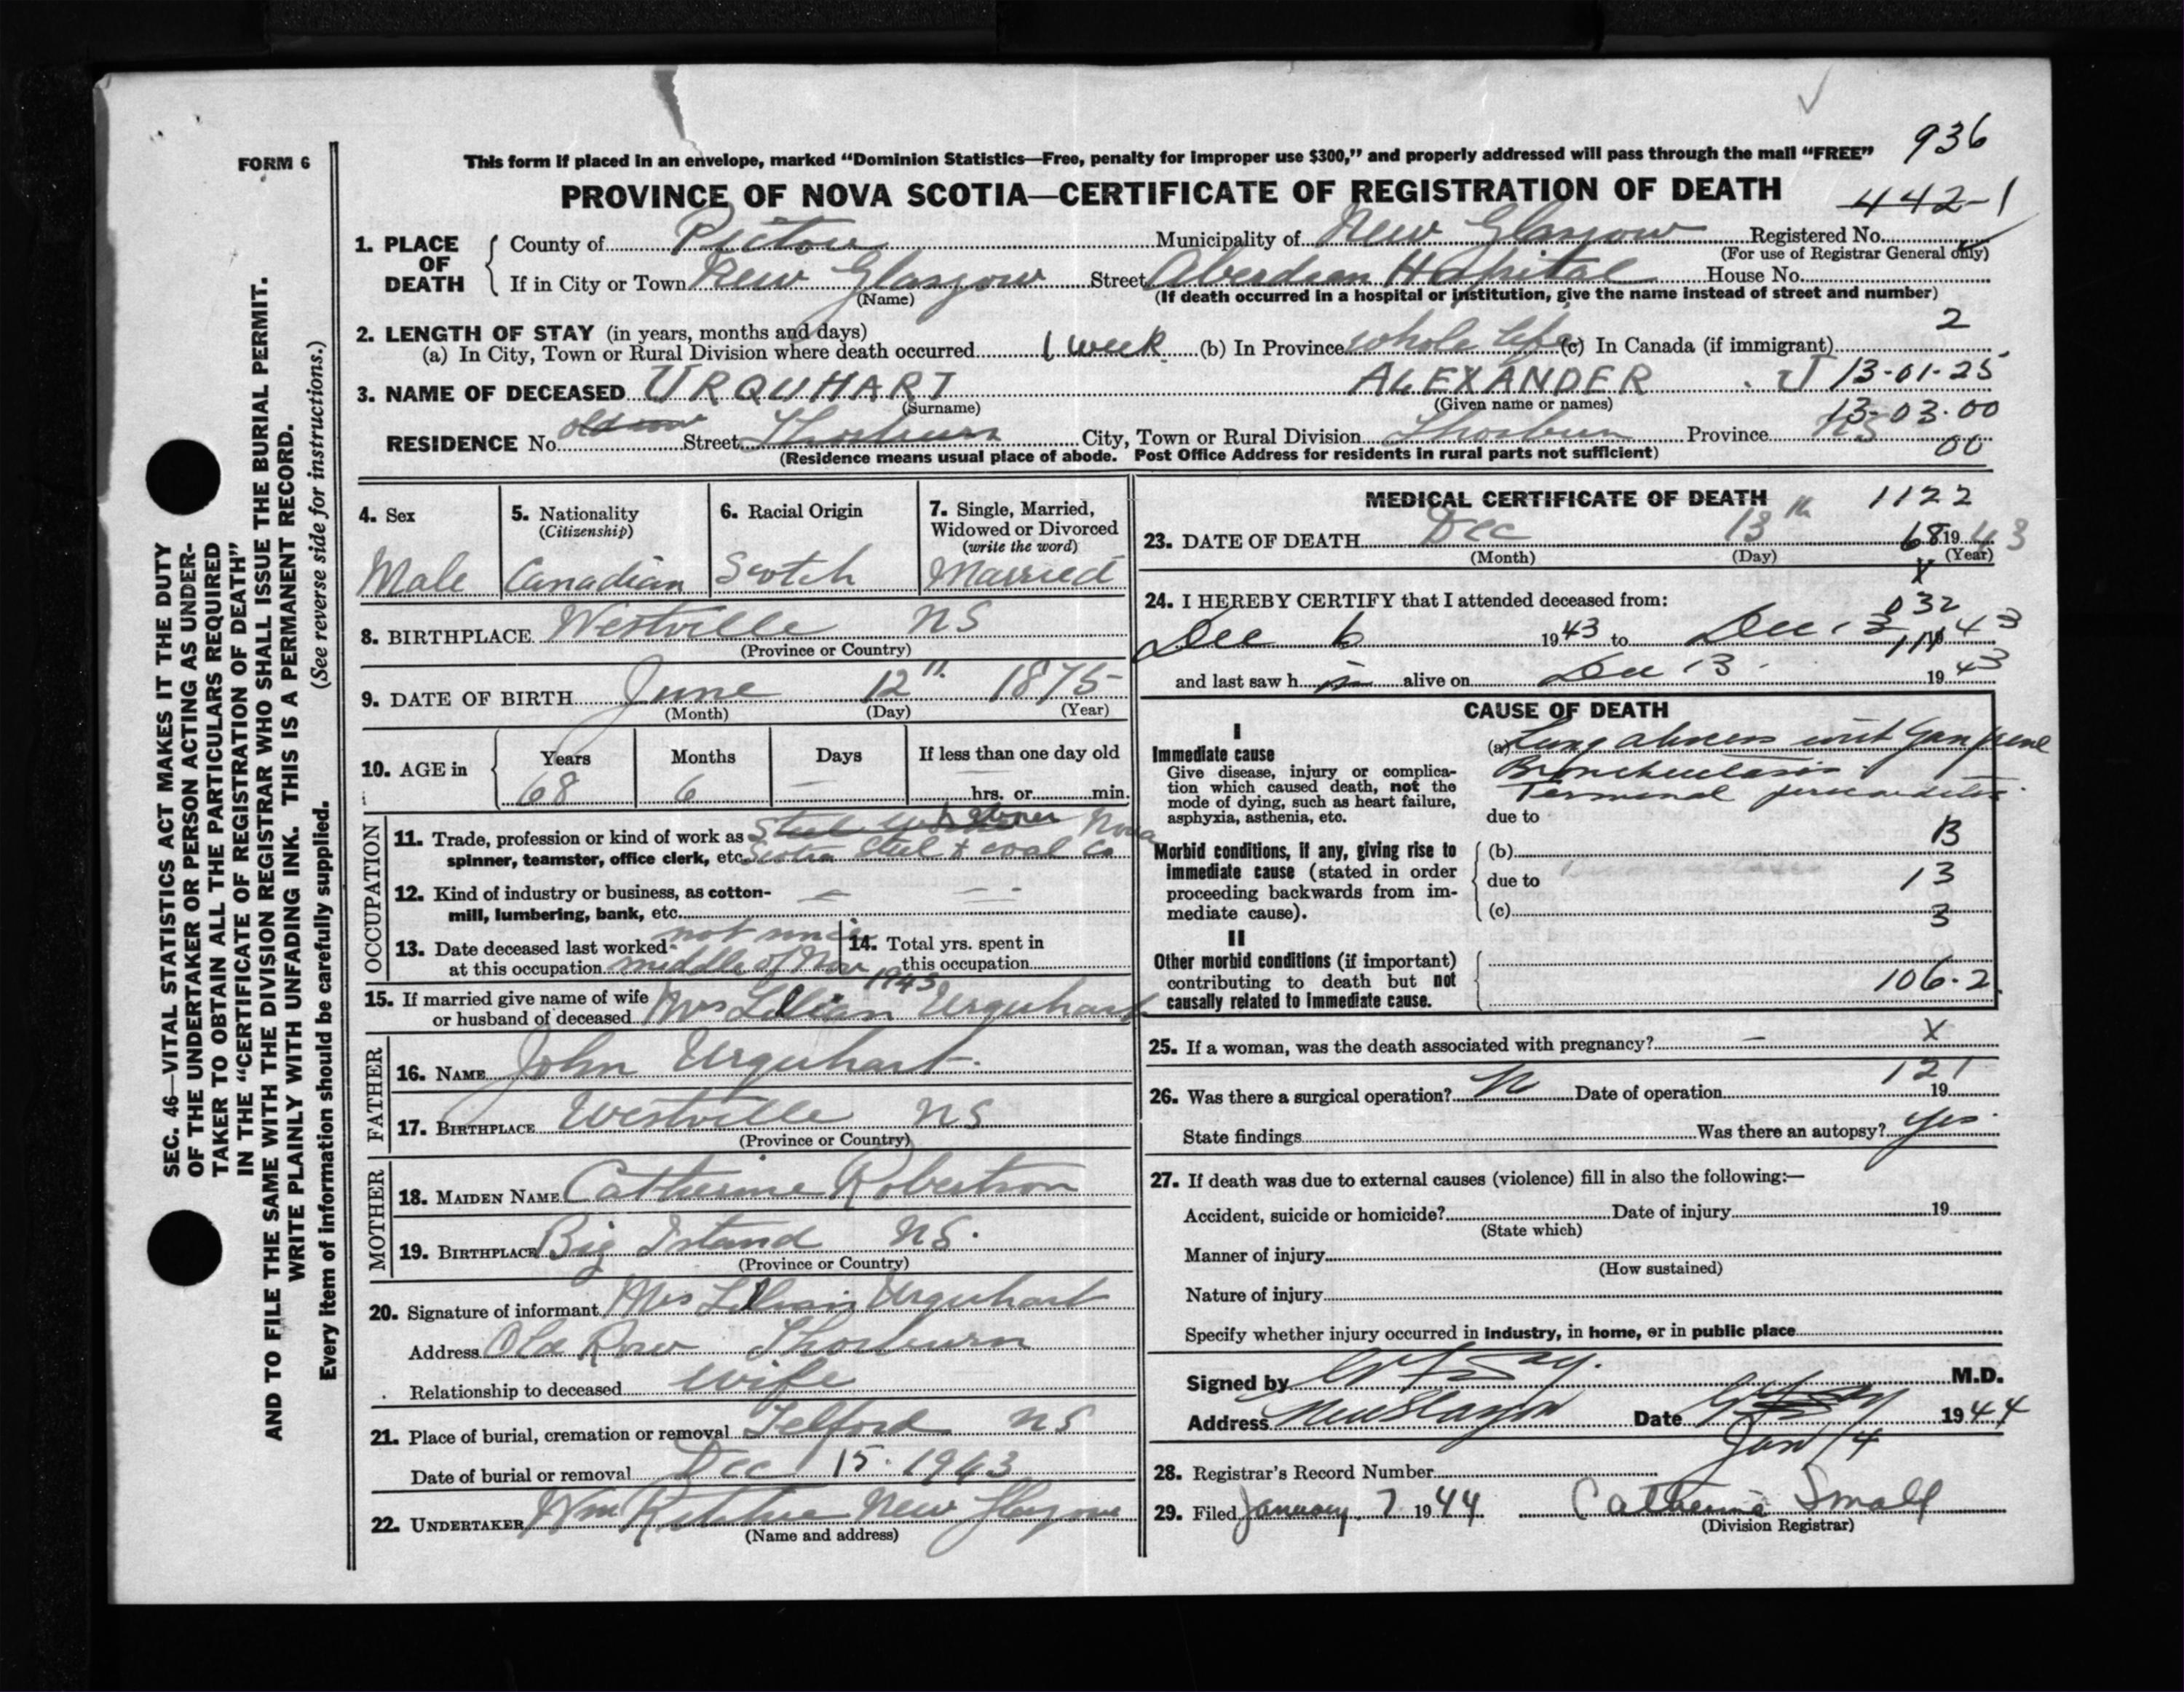 FORM 6
This form if placed in an envelope, marked “Dominion Statistics—Free, penalty for improper use $300,” and properly addressed will pass through the mail “FREE”
936
PROVINCE OF NOVA SCOTIA—CERTIFICATE OF REGISTRATION OF DEATH
442-1
1. PLACE OF DEATH
County of Pictou Municipality of New Glasgow Registered No.
(For use of Registrar General only)
If in City or Town New Glasgow Street Aberdeen Hospital House No.
(Name) (If death occurred in a hospital or institution, give the name instead of street and number)
2. LENGTH OF STAY (in years, months and days) 2
(a) In City, Town or Rural Division where death occurred 1 week (b) In Province whole life (c) In Canada (if immigrant)
3. NAME OF DECEASED URQUHART ALEXANDER 13-01-25
(Surname) (Given name or names) 13-03-00
RESIDENCE No. old row Street Thorburn City, Town or Rural Division Thorburn Province NS 00
(Residence means usual place of abode. Post Office Address for residents in rural parts not sufficient)
4. Sex
Male
5. Nationality
(Citizenship)
Canadian
6. Racial Origin
Scotch
7. Single, Married, Widowed or Divorced
(write the word)
Married
8. BIRTHPLACE Westville NS
(Province or Country)
9. DATE OF BIRTH June 12" 1875
(Month) (Day) (Year)
10. AGE in
Years Months Days If less than one day old
68 6 — hrs. or min.
OCCUPATION
11. Trade, profession or kind of work as Steel Nova
spinner, teamster, office clerk, etc. Scotia Steel + Coal Co
12. Kind of industry or business, as cotton-
mill, lumbering, bank, etc.
13. Date deceased last worked not since
at this occupation middle of Nov 1943
14. Total yrs. spent in
this occupation
15. If married give name of wife
or husband of deceased Mrs Lillian Urquhart
FATHER
16. NAME John Urquhart
17. BIRTHPLACE Westville NS
(Province or Country)
MOTHER
18. MAIDEN NAME Catherine Robertson
19. BIRTHPLACE Big Island NS.
(Province or Country)
20. Signature of informant Mrs Lillian Urquhart
Address Old Row Thorburn
Relationship to deceased wife
21. Place of burial, cremation or removal Telford NS
Date of burial or removal Dec 15. 1943
22. UNDERTAKER Wm Ritchie New Glasgow
(Name and address)
MEDICAL CERTIFICATE OF DEATH 1122
23. DATE OF DEATH Dec 13th 68 1943
(Month) (Day) (Year)
X
24. I HEREBY CERTIFY that I attended deceased from: 032
Dec 6 1943 to Dec 13 1943
and last saw h alive on Dec 13 1943
CAUSE OF DEATH
I
Immediate cause
Give disease, injury or complica-
tion which caused death, not the
mode of dying, such as heart failure,
asphyxia, asthenia, etc.
(a) Lung abscess with Gangrene
Bronchiectasis
Terminal pericarditis
due to
Morbid conditions, if any, giving rise to
immediate cause (stated in order
proceeding backwards from im-
mediate cause).
(b) B
due to 13
(c) 3
II
Other morbid conditions (if important)
contributing to death but not
causally related to immediate cause.
106-2
25. If a woman, was the death associated with pregnancy? — X
121
26. Was there a surgical operation? N Date of operation 19
State findings Was there an autopsy? Yes
27. If death was due to external causes (violence) fill in also the following:—
Accident, suicide or homicide? Date of injury 19
(State which)
Manner of injury
(How sustained)
Nature of injury
Specify whether injury occurred in industry, in home, or in public place
Signed by M.D.
Address New Glasgow Date 1944
Jan 4
28. Registrar's Record Number
29. Filed January 7 1944 Catherine Small
(Division Registrar)
SEC. 46—VITAL STATISTICS ACT MAKES IT THE DUTY
OF THE UNDERTAKER OR PERSON ACTING AS UNDER-
TAKER TO OBTAIN ALL THE PARTICULARS REQUIRED
IN THE “CERTIFICATE OF REGISTRATION OF DEATH”
AND TO FILE THE SAME WITH THE DIVISION REGISTRAR WHO SHALL ISSUE THE BURIAL PERMIT.
WRITE PLAINLY WITH UNFADING INK. THIS IS A PERMANENT RECORD.
Every item of information should be carefully supplied. (See reverse side for instructions.)